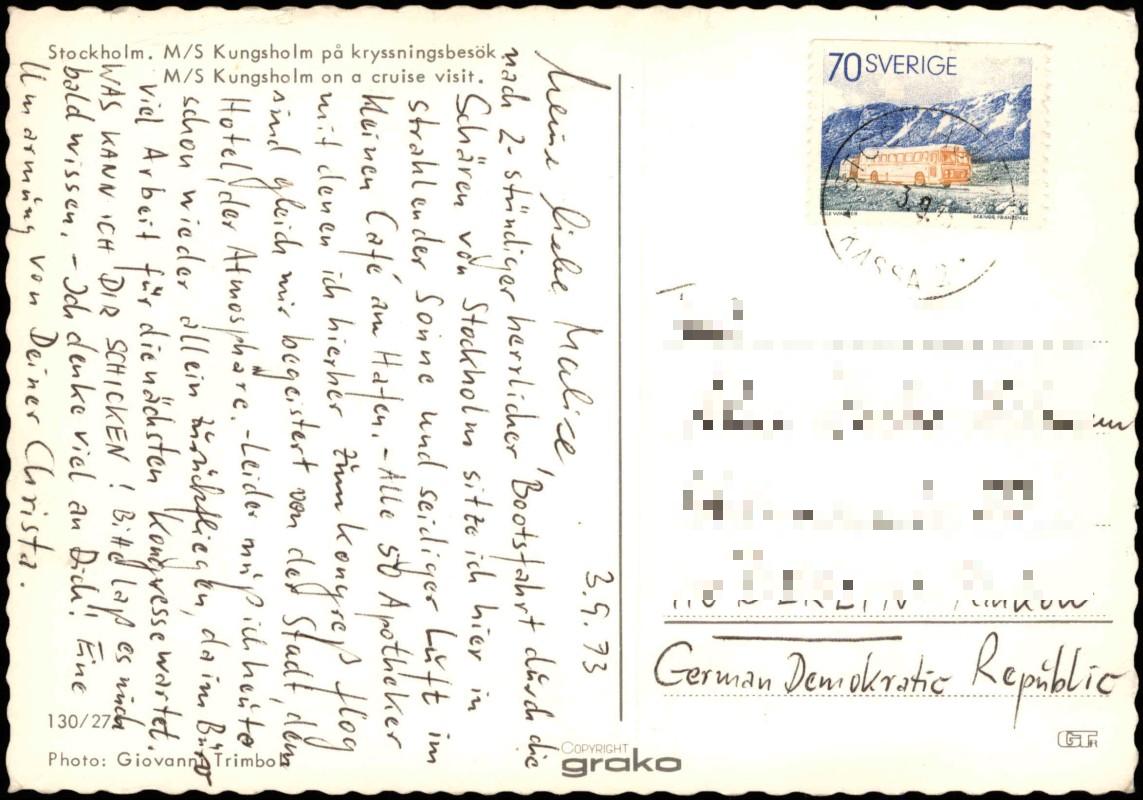 Stockholm. M/S Kungsholm på kryssningsbesök
M/S Kungsholm on a cruise visit.
3.9.73
Meine liebe Malise,
nach 2-stündiger herrlicher Bootsfahrt durch die
Schären von Stockholm sitze ich hier in
strahlender Sonne und seidiger Luft im
kleinen Café am Hafen. - Alle 50 Apotheker
mit denen ich hierher zum Kongreß flog
sind gleich mir begeistert von der Stadt, dem
Hotel, der Atmosphäre. - Leider muß ich heute
schon wieder allein zurückfliegen, da im Büro
viel Arbeit für die nächsten Kongresse wartet.
WAS KANN ICH DIR SCHICKEN! Bitte laß es mich
bald wissen. - Ich denke viel an Dich! Eine
Umarmung von Deiner Christa.
130/27
Photo: Giovanni Trimboli
COPYRIGHT
grako
70 SVERIGE
3.9.
KASSA
BERLIN
German Demokratic Republic